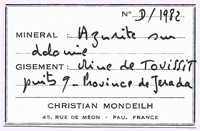 N° D/1982
MINERAL : Azurite sur
dolomie
GISEMENT : Mine de TOUISSIT
puits 9 - Province de Jerada
CHRISTIAN MONDEILH
45, RUE DE MÉON - PAU. FRANCE